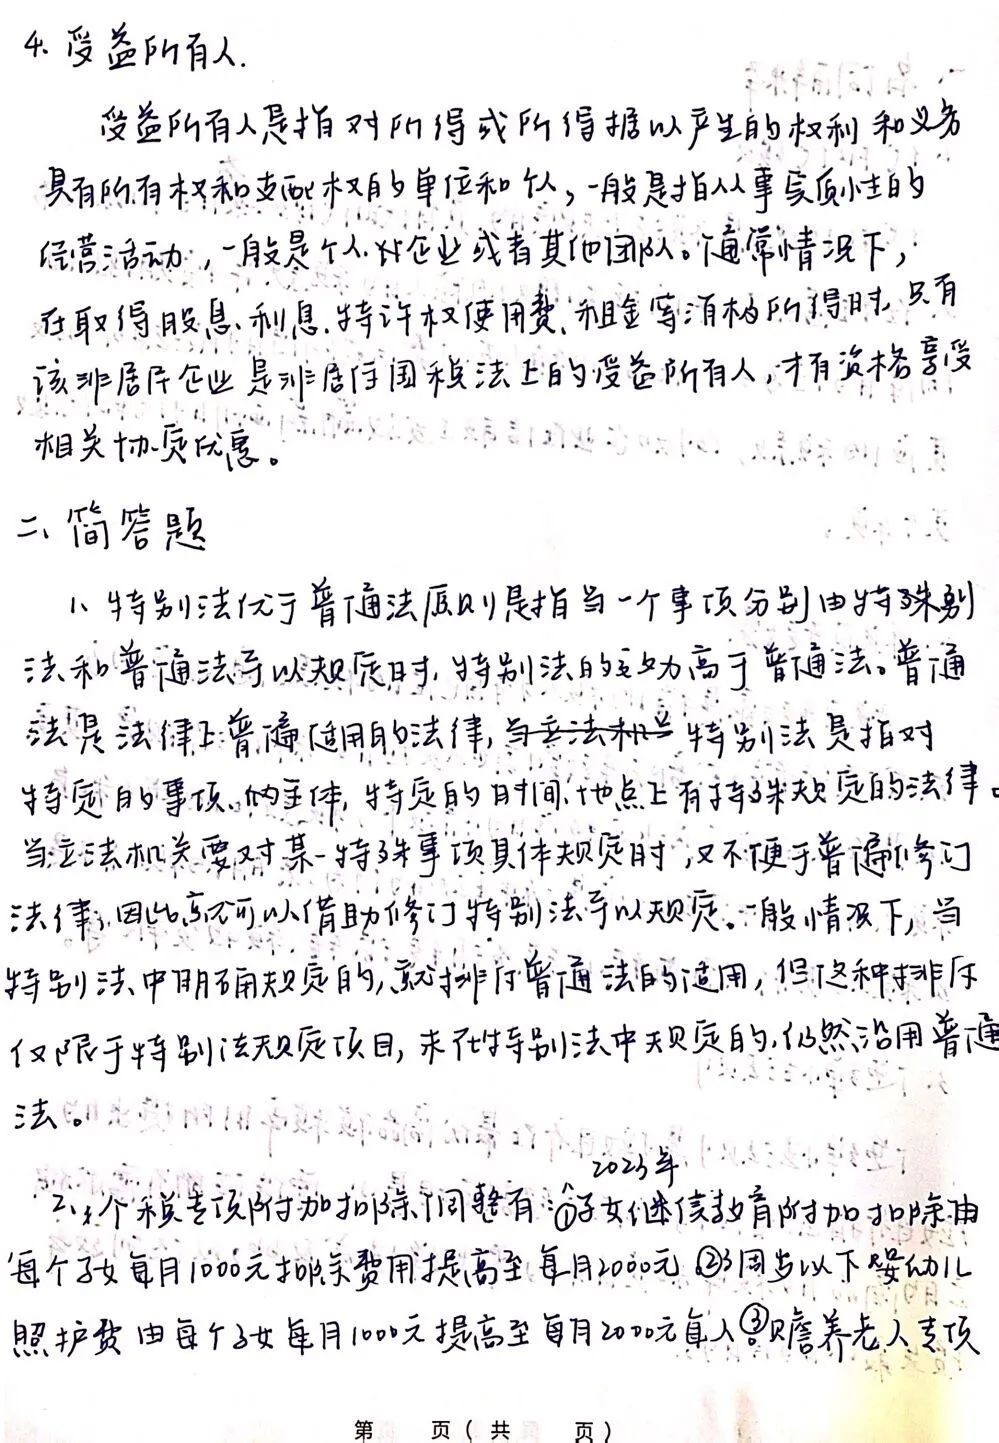 4. 受益所有人.
受益所有人是指对所得或所得据以产生的权利和义务
具有所有权和支配权的单位和个人,一般是指从事实质性的
经营活动,一般是个人.公企业或者其他团队。通常情况下,
在取得股息、利息.特许权使用费、租金等消极所得时,只有
该非居民企业是非居住国税法上的受益所有人,才有资格享受
相关协定优惠。
二、简答题
1、特别法优于普通法原则是指当一个事项分别由特殊别
法和普通法予以规定时,特别法的效力高于普通法。普通
法是法律上普遍适用的法律,当立法机关 特别法是指对
特定的事项、的主体,特定的时间、地点上有特殊规定的法律。
当立法机关要对某一特殊事项具体规定时,又不便于普遍修订
法律,因此就可以借助修订特别法予以规定。一般情况下,当
特别法中明确规定的,就排斥普通法的适用,但这种排斥
仅限于特别法规定项目,未在特别法中规定的,仍然沿用普通
法。
2023年
2、个税专项附加扣除调整有:①子女继续教育附加扣除由
每个子女每月1000元扣除费用提高至每月2000元 ②3周岁以下婴幼儿
照护费由每个子女每月1000元提高至每月2000元每人③赡养老人专项
第 页(共 页)